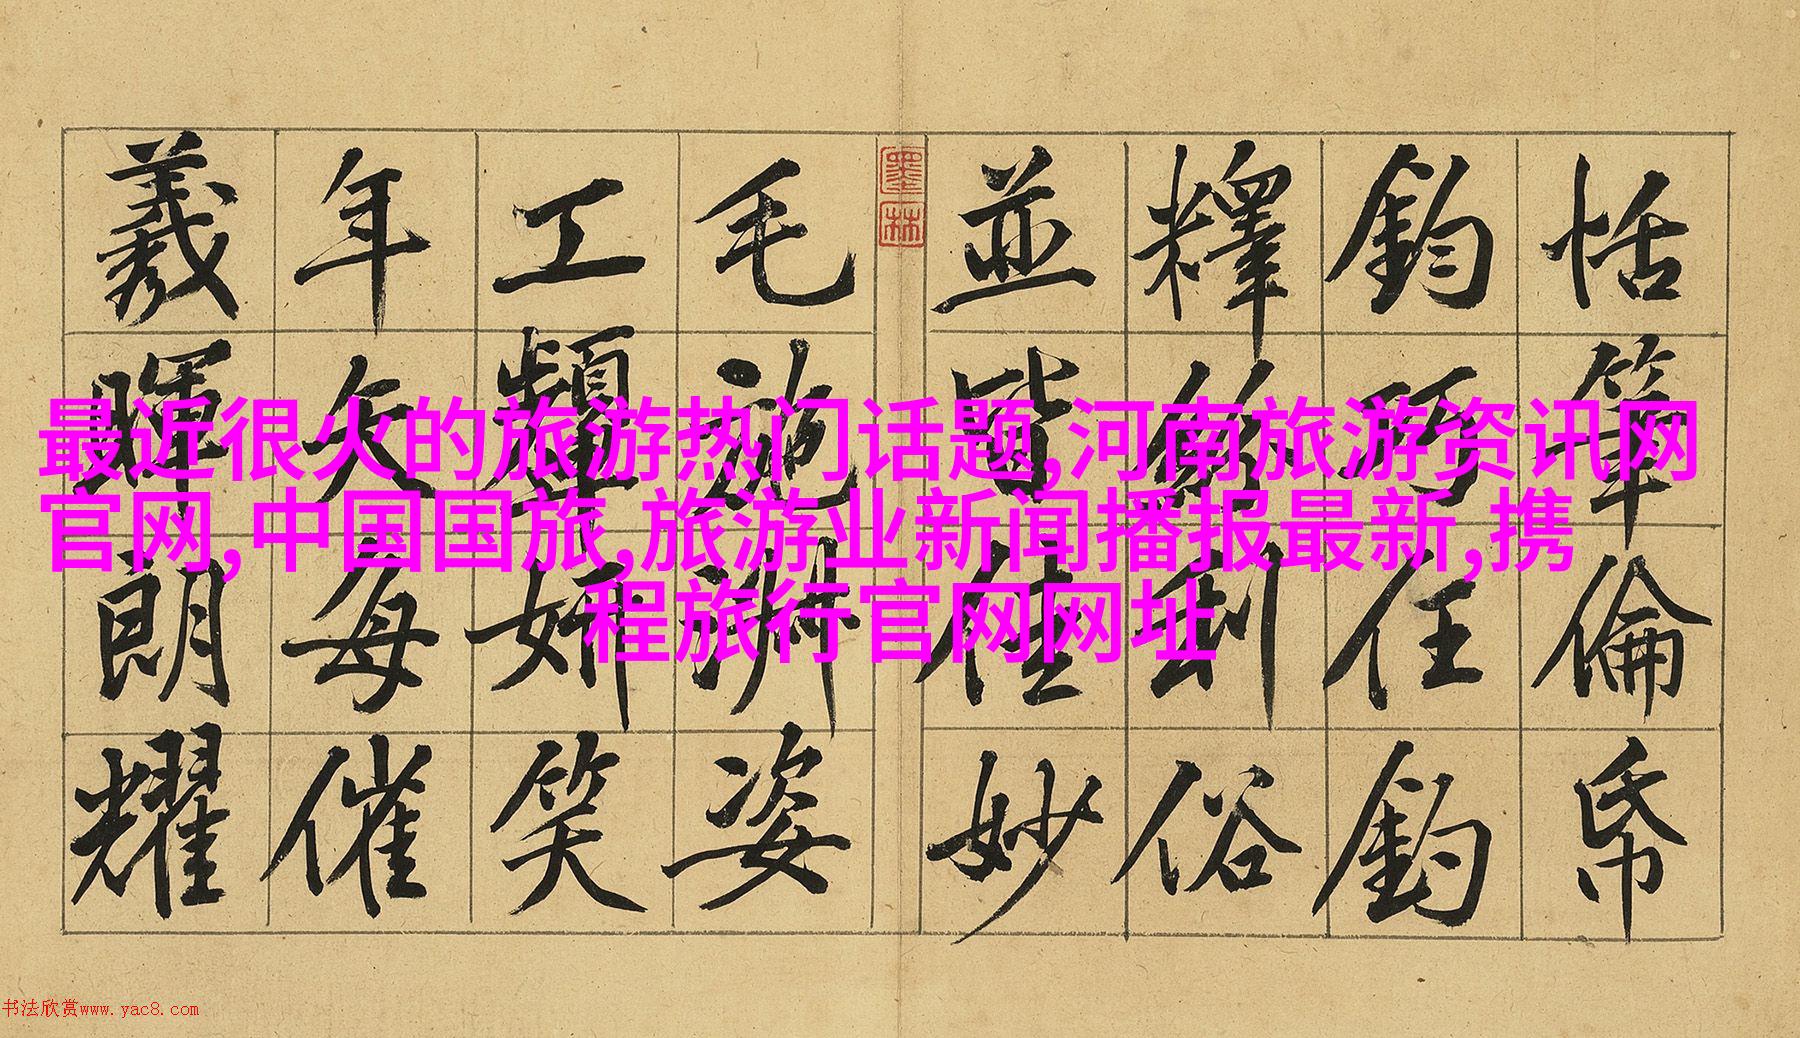 恬筆倫帋
鈞巧任釣
釋紛利俗
並皆佳妙
墨林
毛施淑姿
工顰妍笑
年矢每催
羲暉朗耀
最近很火的旅游热门话题,河南旅游资讯网
官网,中国国旅,旅游业新闻播报最新,携
程旅行官网网址
书法欣赏www.yac8.com